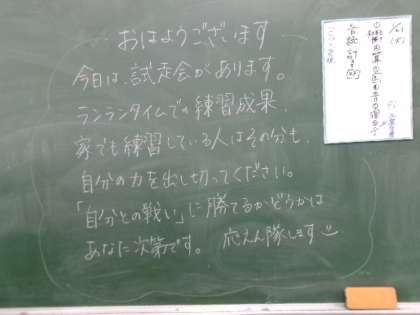 おはようございます
今日は、試走会があります。
ランランタイムでの練習成果、
家でも練習している人はその分も、
自分の力を出し切ってください。
「自分との戦い」に勝てるかどうかは
あなた次第です。 応えん隊します
音読 計ド